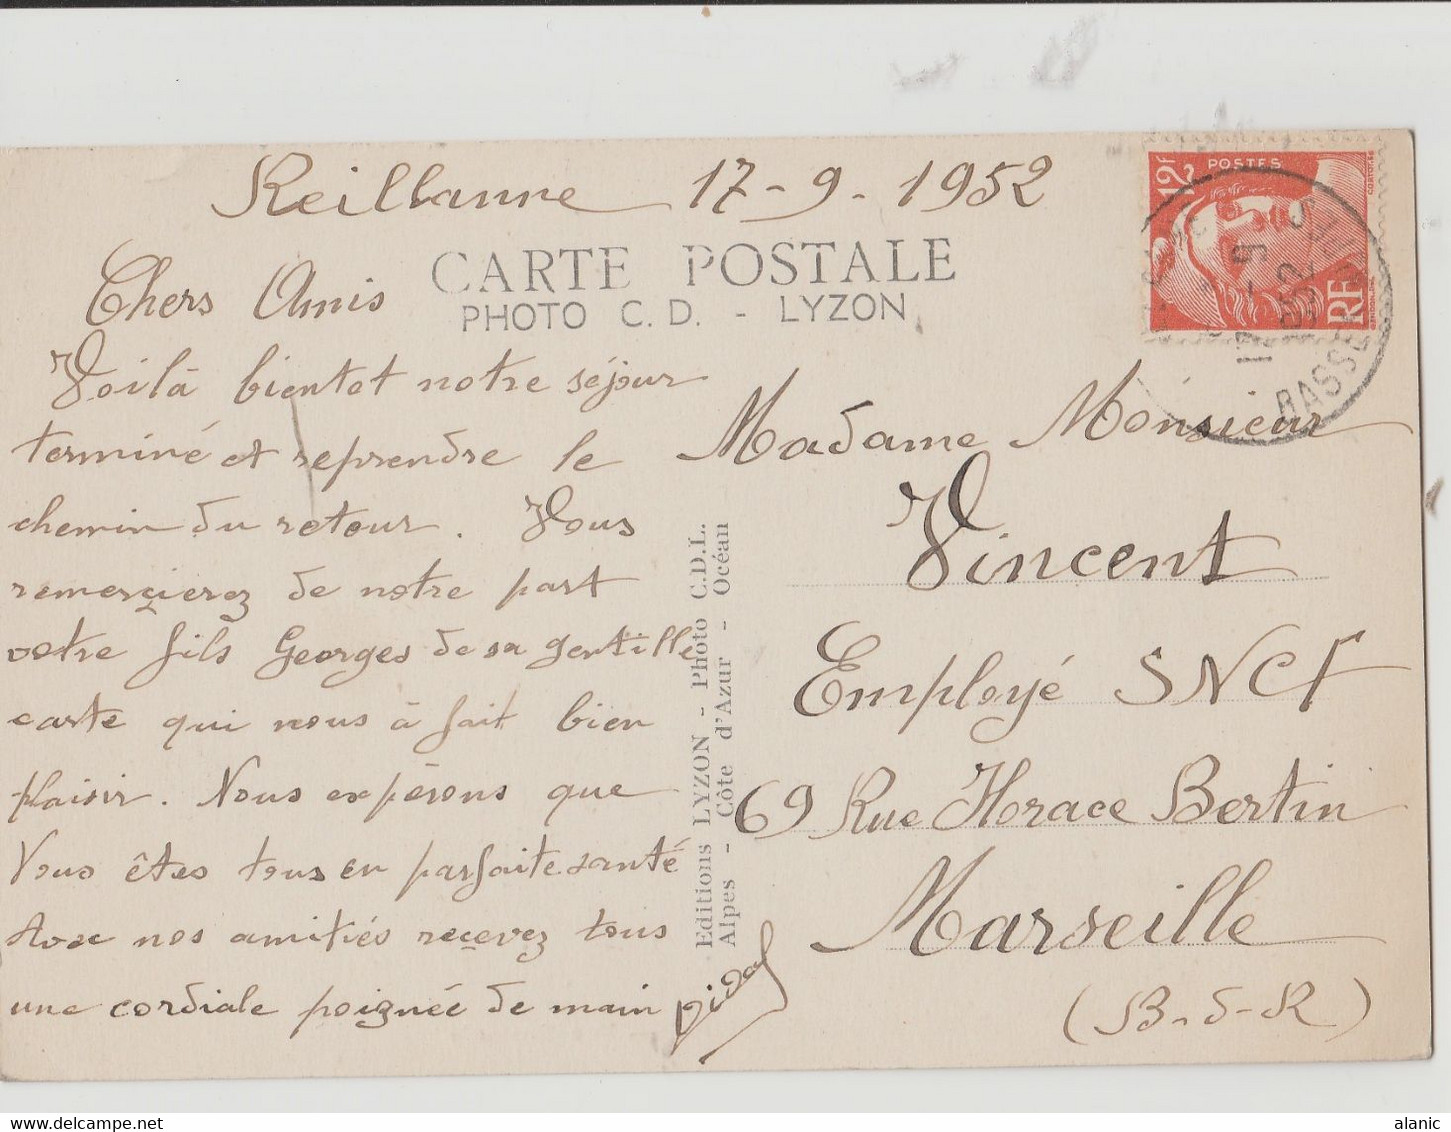 Reillanne 17-9-1952
CARTE POSTALE
PHOTO C.D. - LYZON
Chers Amis
Voilà bientot notre séjour
terminé et reprendre le
chemin du retour. Vous
remerçierez de notre part
votre fils Georges de sa gentille
carte qui nous à fait bien
plaisir. Nous expérons que
Vous êtes tous en parfaite santé
Avec nos amitiés reçevez tous
une cordiale poignée de main
Vidal
Editions LYZON - Photo C.D.L.
Alpes - Côte d'Azur - Océan
12F POSTES
RF
17 - 9
1952
BASSES
Madame Monsieur
Vincent
Employé SNCF
69 Rue Horace Bertin
Marseille
(B-d-R)
delcampe.net
alanic